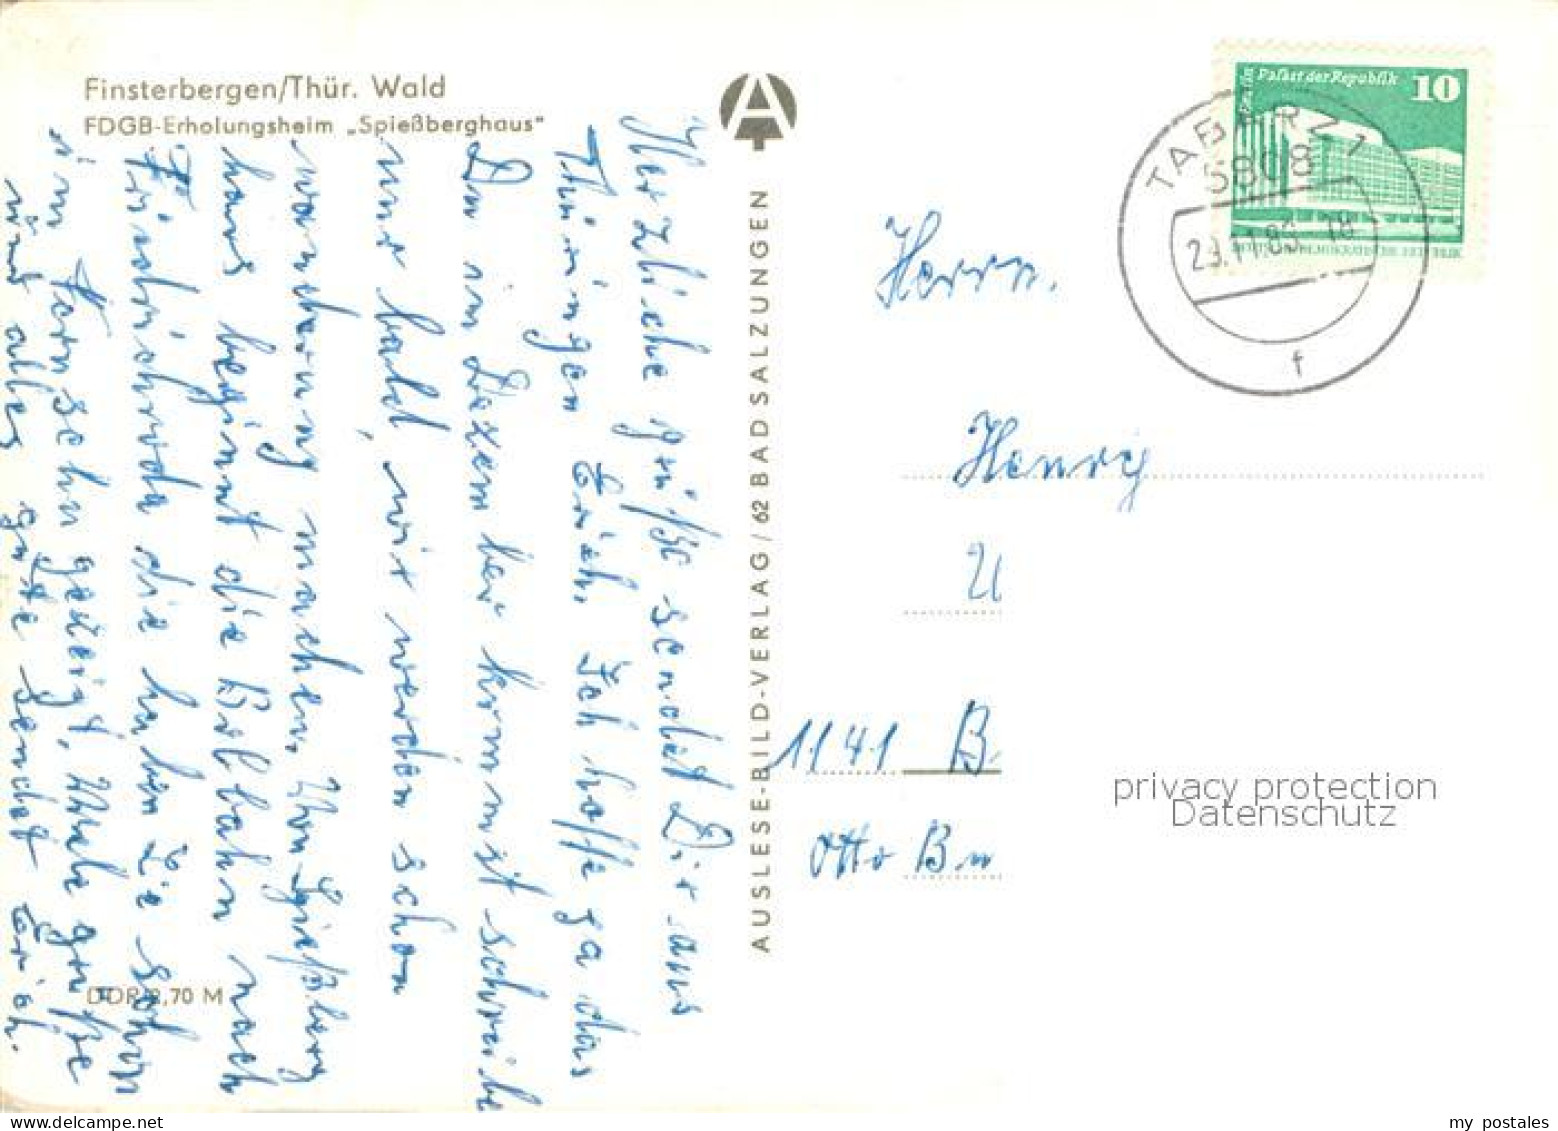 Finsterbergen/Thür. Wald
FDGB-Erholungsheim „Spießberghaus"
Herzliche grüße sendet Dir aus
Thüringen Erich. Ich hoffe ga das
Du im Dezember kommst schreibe
nur bald, wir werden schon
wanderung machen. Von Spießberg
haus beginnt die bahn nach
Friedrichroda die haben Sie schon
im Fernsehn gezeigt, Viele grüße
und alles gute sendet Erich.
DDR 0,70 M
AUSLESE-BILD-VERLAG/62 BAD SALZUNGEN
Berlin Palast der Republik 10
TABARZ 1
5808
29.11.83-18
f
Herrn.
Henry
U
1141 B
Otto Bu
privacy protection
Datenschutz
my postales